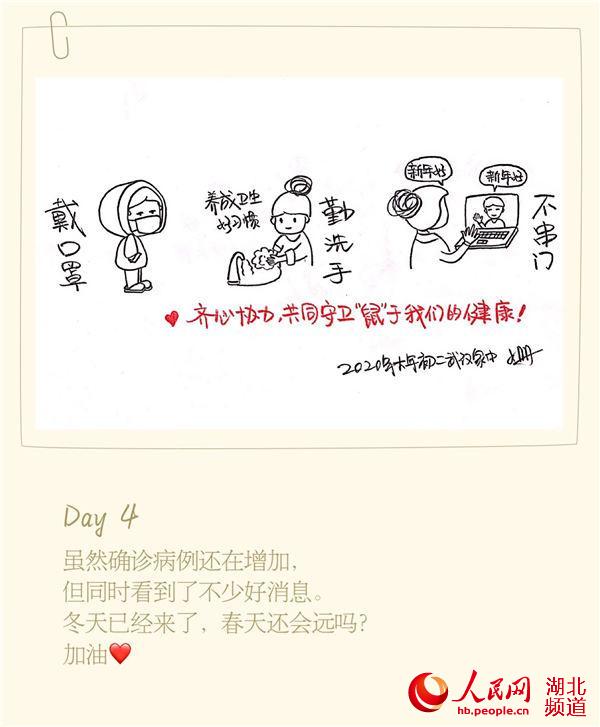 戴口罩
养成卫生
好习惯
勤洗手
新年好
新年好
不串门
齐心协力,共同守卫"鼠"于我们的健康!
2020年大年初二武汉家中
Day 4
虽然确诊病例还在增加,
但同时看到了不少好消息。
冬天已经来了，春天还会远吗?
加油❤️
人民网
hb.people.cn
湖北
频道